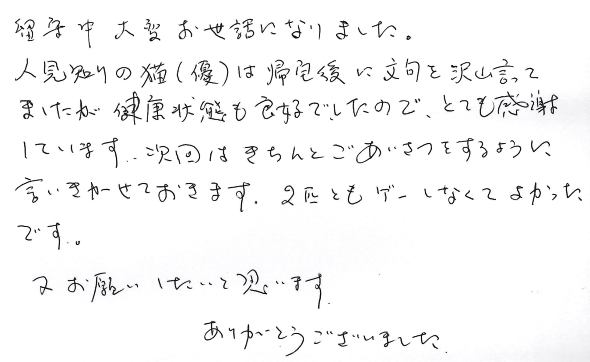 留守中大変お世話になりました。
人見知りの猫(優)は帰宅後に文句を沢山言って
ましたが健康状態も良好でしたので、とても感謝
しています。次回はきちんとごあいさつをするように
言いきかせておきます。2匹ともゲーしなくてよかった
です。
又お願いしたいと思います
ありがとうございました